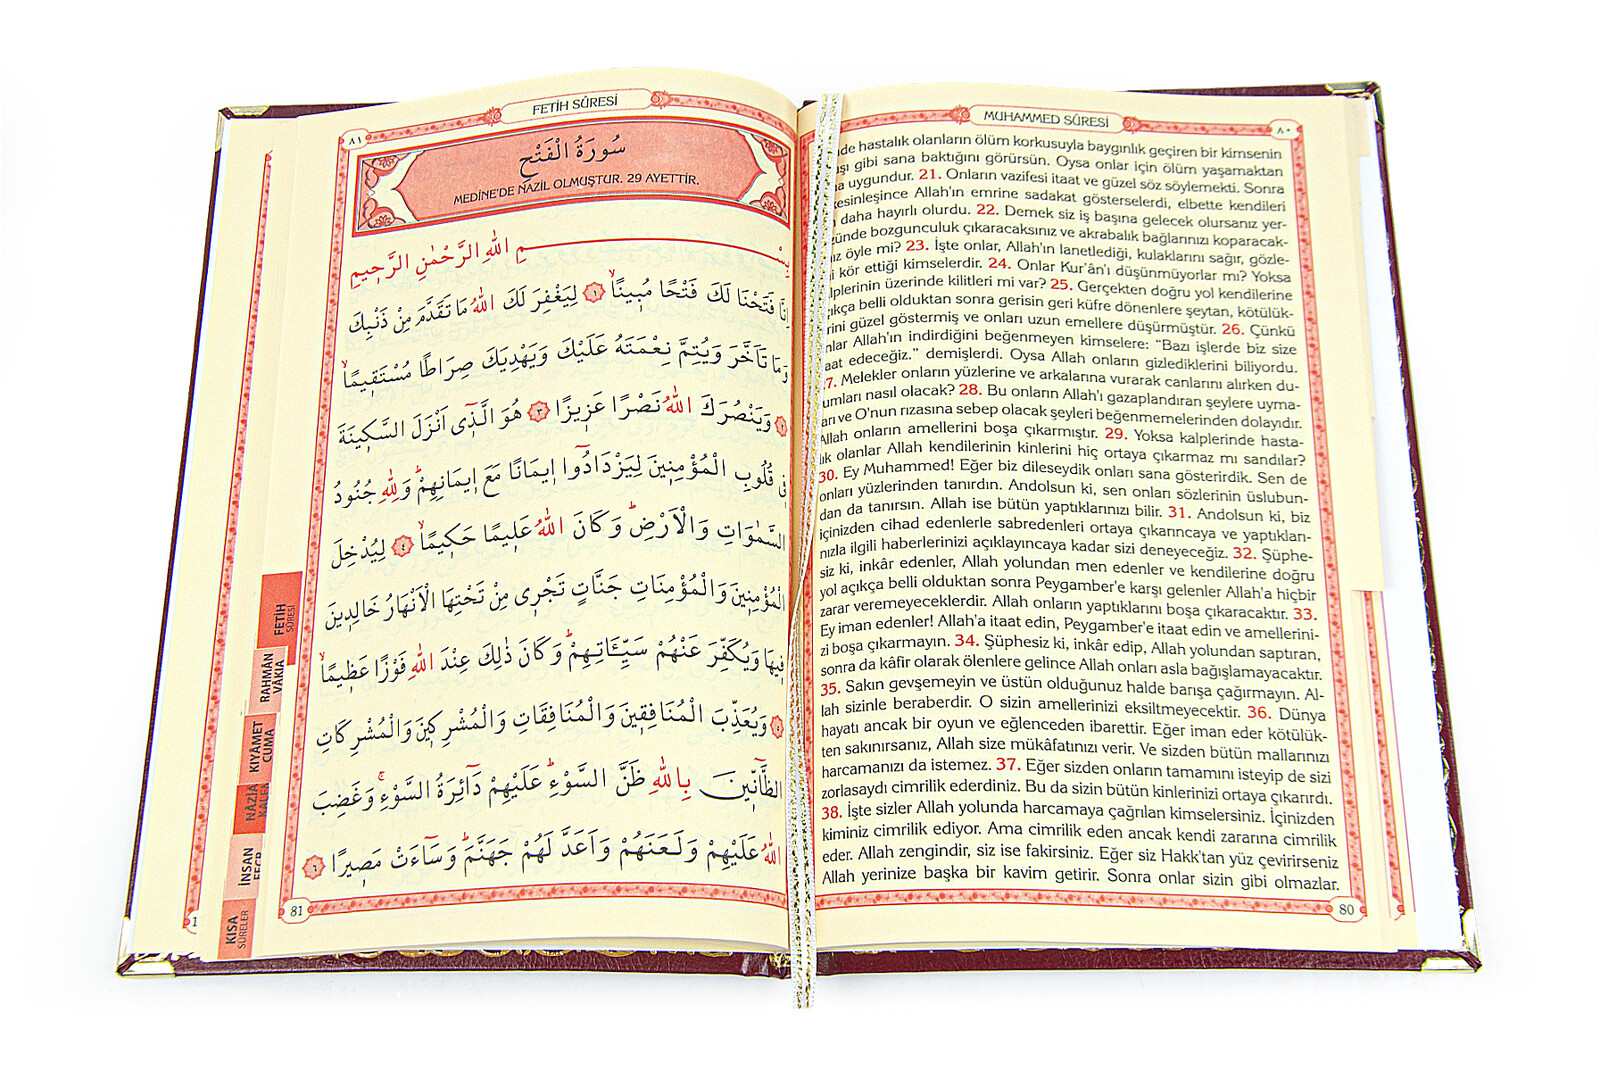 MUHAMMED SÛRESİ
٨٠
hastalık olanların ölüm korkusuyla baygınlık geçiren bir kimsenin
gibi sana baktığını görürsün. Oysa onlar için ölüm yaşamaktan
uygundur. 21. Onların vazifesi itaat ve güzel söz söylemekti. Sonra
kesinleşince Allah'ın emrine sadakat gösterselerdi, elbette kendileri
daha hayırlı olurdu. 22. Demek siz iş başına gelecek olursanız yer-
bozgunculuk çıkaracaksınız ve akrabalık bağlarınızı koparacak-
öyle mi? 23. İşte onlar, Allah'ın lanetlediği, kulaklarını sağır, gözle-
kör ettiği kimselerdir. 24. Onlar Kur'ân'ı düşünmüyorlar mı? Yoksa
kalplerinin üzerinde kilitleri mi var? 25. Gerçekten doğru yol kendilerine
belli olduktan sonra gerisin geri küfre dönenlere şeytan, kötülük-
güzel göstermiş ve onları uzun emellere düşürmüştür. 26. Çünkü
onlar Allah'ın indirdiğini beğenmeyen kimselere: "Bazı işlerde biz size
edeceğiz." demişlerdi. Oysa Allah onların gizlediklerini biliyordu.
Melekler onların yüzlerine ve arkalarına vurarak canlarını alırken du-
rumları nasıl olacak? 28. Bu onların Allah'ı gazaplandıran şeylere uyma-
ları ve O'nun rızasına sebep olacak şeyleri beğenmemelerinden dolayıdır.
Allah onların amellerini boşa çıkarmıştır. 29. Yoksa kalplerinde hasta-
lık olanlar Allah kendilerinin kinlerini hiç ortaya çıkarmaz mı sandılar?
30. Ey Muhammed! Eğer biz dileseydik onları sana gösterirdik. Sen de
onları yüzlerinden tanırdın. Andolsun ki, sen onları sözlerinin üslubun-
dan da tanırsın. Allah ise bütün yaptıklarınızı bilir. 31. Andolsun ki, biz
içinizden cihad edenlerle sabredenleri ortaya çıkarıncaya ve yaptıkları-
nızla ilgili haberlerinizi açıklayıncaya kadar sizi deneyeceğiz. 32. Şüphe-
siz ki, inkâr edenler, Allah yolundan men edenler ve kendilerine doğru
yol açıkça belli olduktan sonra Peygamber'e karşı gelenler Allah'a hiçbir
zarar veremeyeceklerdir. Allah onların yaptıklarını boşa çıkaracaktır. 33.
Ey iman edenler! Allah'a itaat edin, Peygamber'e itaat edin ve amellerini-
zi boşa çıkarmayın. 34. Şüphesiz ki, inkâr edip, Allah yolundan saptıran,
sonra da kâfir olarak ölenlere gelince Allah onları asla bağışlamayacaktır.
35. Sakın gevşemeyin ve üstün olduğunuz halde barışa çağırmayın. Al-
lah sizinle beraberdir. O sizin amellerinizi eksiltmeyecektir. 36. Dünya
hayatı ancak bir oyun ve eğlenceden ibarettir. Eğer iman eder kötülük-
ten sakınırsanız, Allah size mükâfatınızı verir. Ve sizden bütün mallarınızı
harcamanızı da istemez. 37. Eğer sizden onların tamamını isteyip de sizi
zorlasaydı cimrilik ederdiniz. Bu da sizin bütün kinlerinizi ortaya çıkarırdı.
38. İşte sizler Allah yolunda harcamaya çağrılan kimselersiniz. İçinizden
kiminiz cimrilik ediyor. Ama cimrilik eden ancak kendi zararına cimrilik
eder. Allah zengindir, siz ise fakirsiniz. Eğer siz Hakk'tan yüz çevirirseniz
Allah yerinize başka bir kavim getirir. Sonra onlar sizin gibi olmazlar.
80
FETİH SÛRESİ
٨١
سُورَةُ الْفَتْحِ
MEDİNE'DE NAZİL OLMUŞTUR. 29 AYETTİR.
بِسْمِ اللهِ الرَّحْمٰنِ الرَّحٖيمِ
اِنَّا فَتَحْنَا لَكَ فَتْحًا مُبٖينًاۙ ١ لِيَغْفِرَ لَكَ اللهُ مَا تَقَدَّمَ مِنْ ذَنْبِكَ
وَمَا تَاَخَّرَ وَيُتِمَّ نِعْمَتَهُ عَلَيْكَ وَيَهْدِيَكَ صِرَاطًا مُسْتَقٖيمًاۙ
٢ وَيَنْصُرَكَ اللهُ نَصْرًا عَزٖيزًا ٣ هُوَ الَّذٖٓى اَنْزَلَ السَّكٖينَةَ
فٖى قُلُوبِ الْمُؤْمِنٖينَ لِيَزْدَادُٓوا اٖيمَانًا مَعَ اٖيمَانِهِمْؕ وَلِلّٰهِ جُنُودُ
السَّمٰوَاتِ وَالْاَرْضِؕ وَكَانَ اللهُ عَلٖيمًا حَكٖيمًاۙ ٤ لِيُدْخِلَ
الْمُؤْمِنٖينَ وَالْمُؤْمِنَاتِ جَنَّاتٍ تَجْرٖى مِنْ تَحْتِهَا الْاَنْهَارُ خَالِدٖينَ
فٖيهَا وَيُكَفِّرَ عَنْهُمْ سَيِّئَاتِهِمْؕ وَكَانَ ذٰلِكَ عِنْدَ اللهِ فَوْزًا عَظٖيمًاۙ
٥ وَيُعَذِّبَ الْمُنَافِقٖينَ وَالْمُنَافِقَاتِ وَالْمُشْرِكٖينَ وَالْمُشْرِكَاتِ
الظَّٓانّٖينَ بِاللهِ ظَنَّ السَّوْءِؕ عَلَيْهِمْ دَٓائِرَةُ السَّوْءِۚ وَغَضِبَ
اللهُ عَلَيْهِمْ وَلَعَنَهُمْ وَاَعَدَّ لَهُمْ جَهَنَّمَؕ وَسَٓاءَتْ مَصٖيرًا ٦
81
FETİH
SÛRESİ
RAHMÂN
VÂKIA
KIYÂMET
CUMA
İNSAN
KISA
SÛRELER